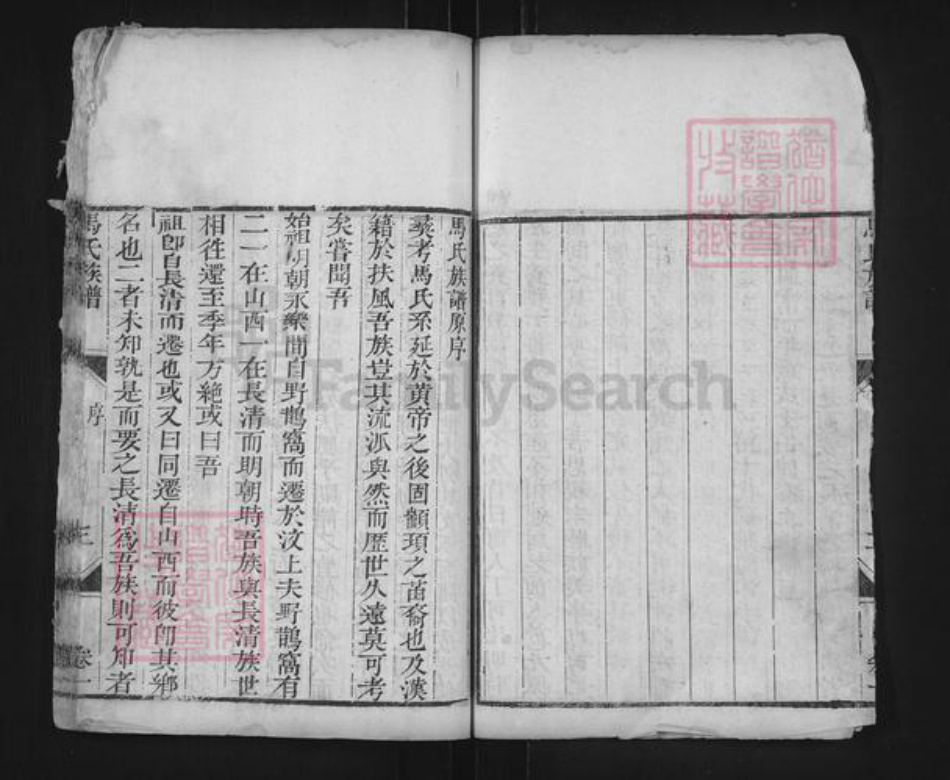 馬氏族譜
馬氏族譜原序
嘗考馬氏系延於黃帝之後固顓頊之苗裔也及漢
籍於扶風吾族豈其流派與然而歷世久遠莫可考
矣嘗聞吾
始祖明朝永樂間自野鵲窩而遷於汶上夫野鵲窩有
二一在山西一在長清而明朝時吾族與長清族世
相徃還至季年方絶或曰吾
祖卽自長清而遷也或又曰同遷自山西而彼卽其鄉
名也二者未知孰是而要之長清爲吾族則可知者
馬氏族譜 序 三 卷一
FamilySearch